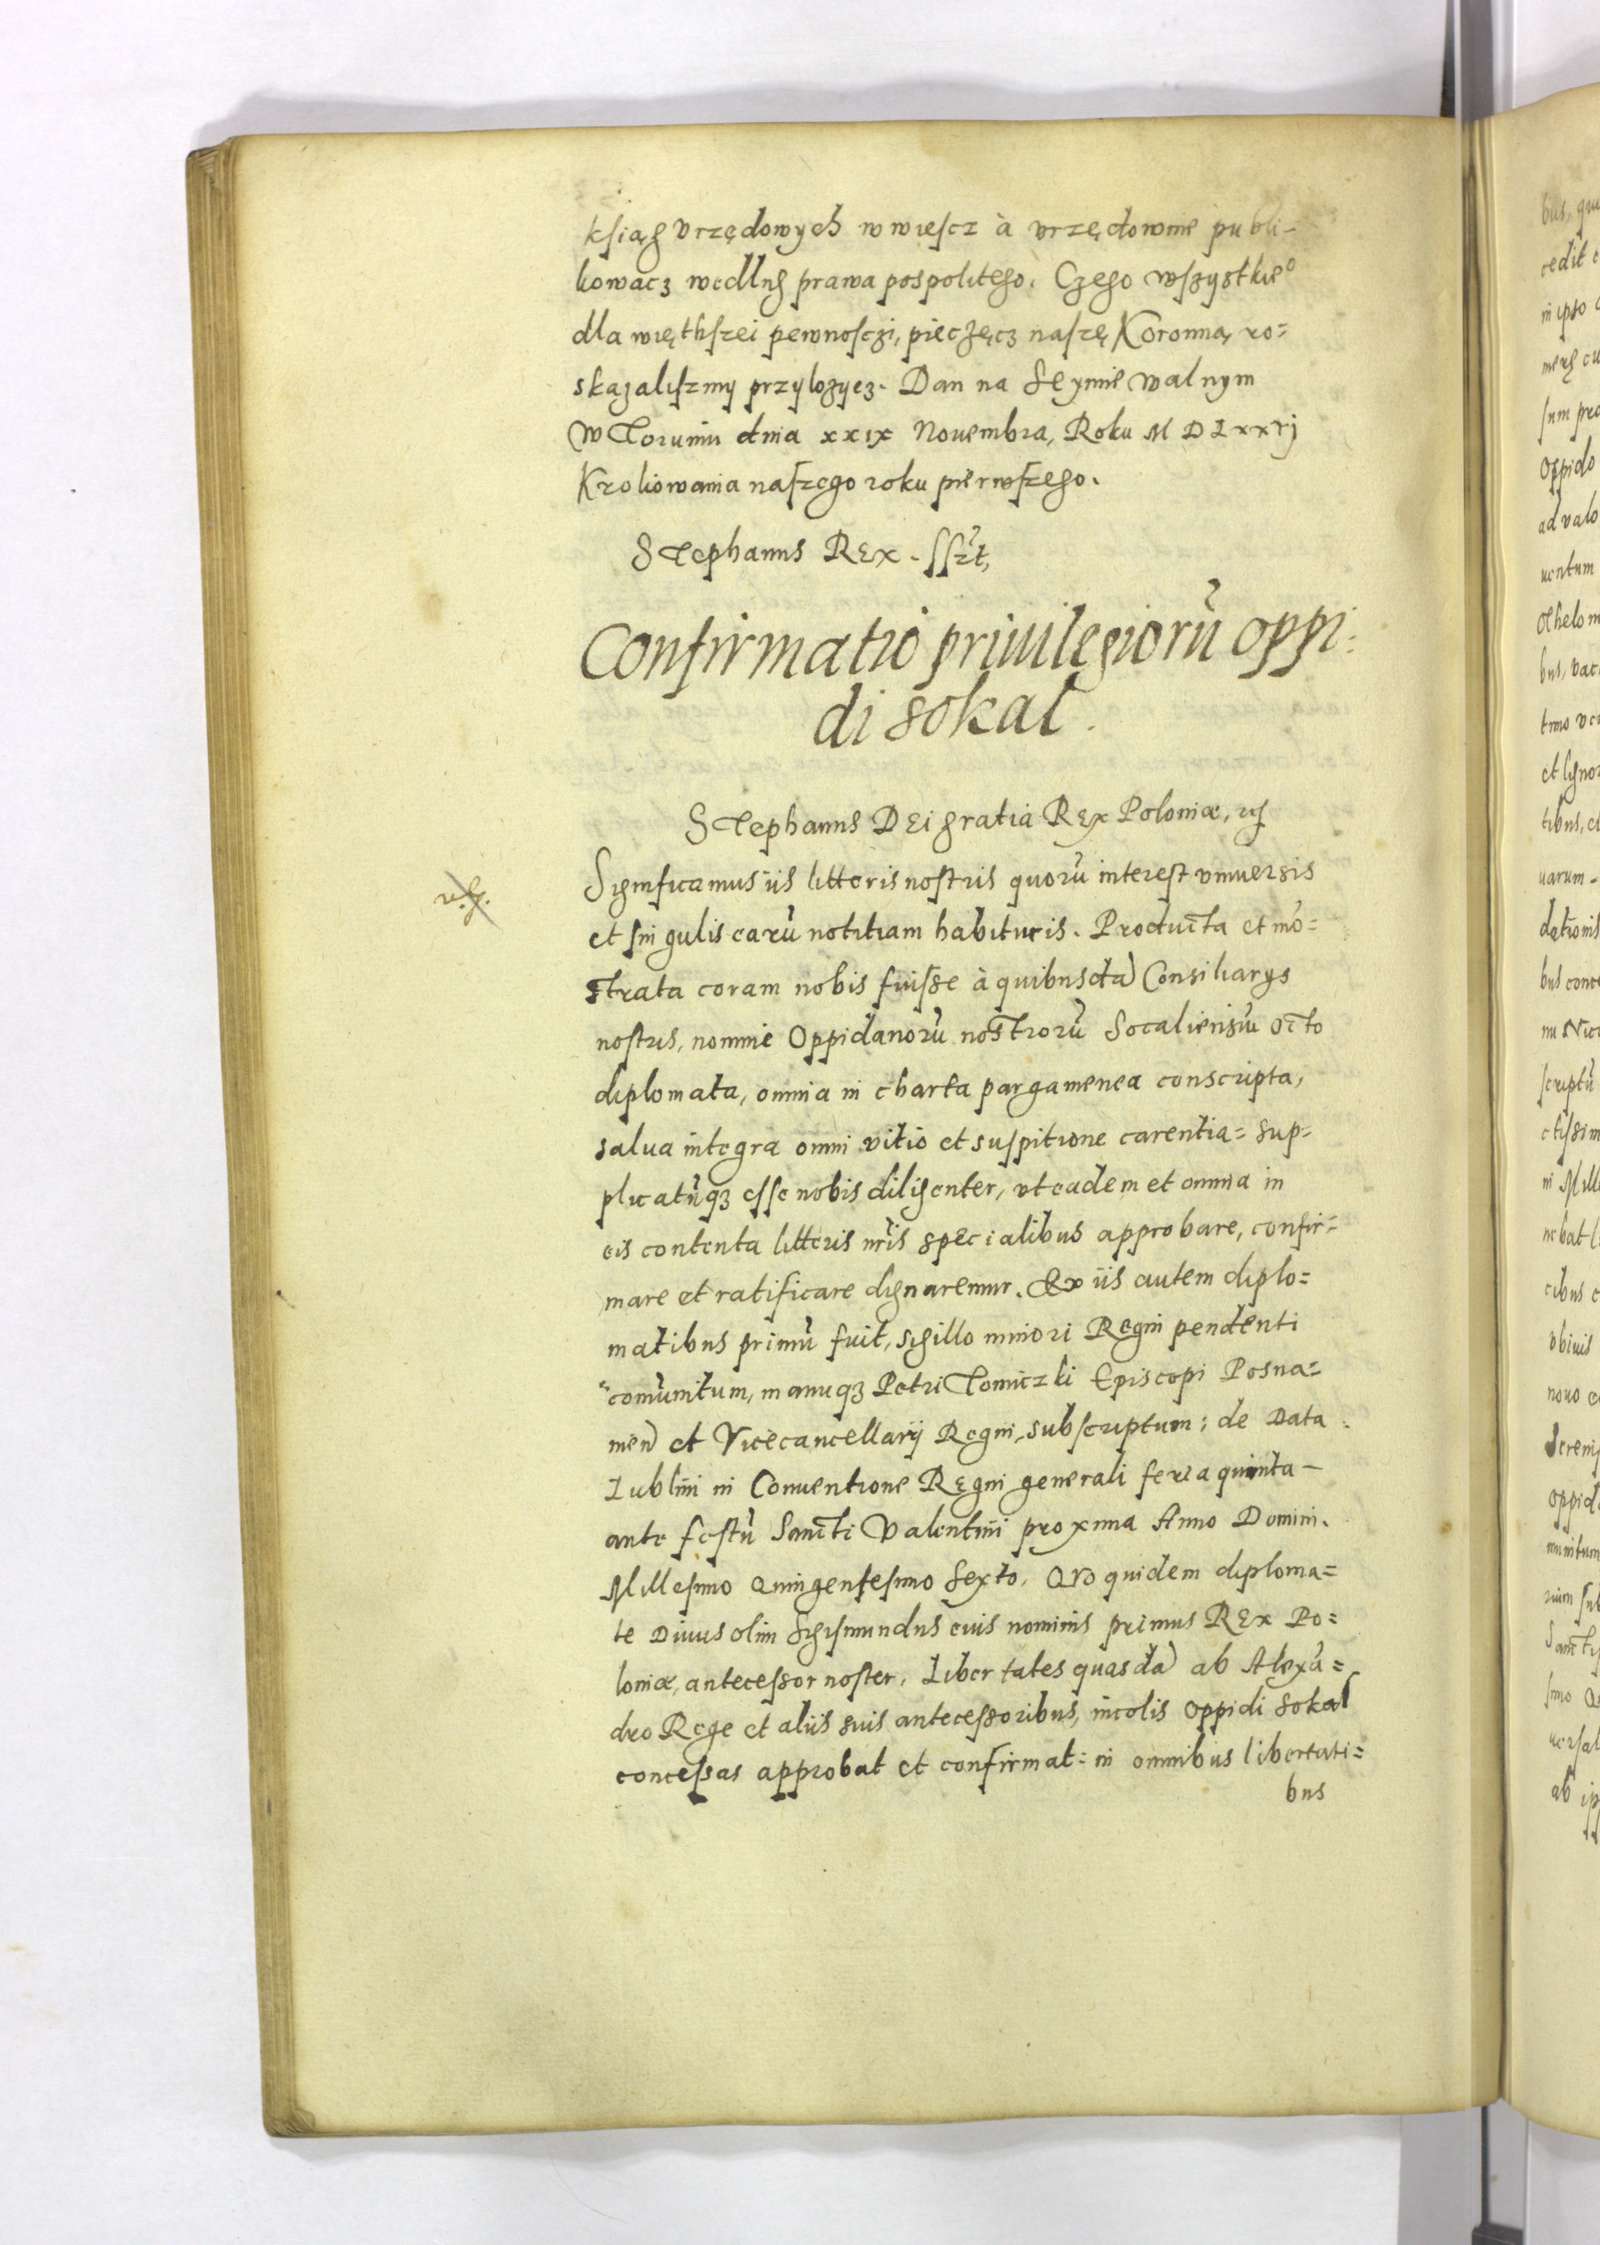 ksiąg vrzędowych wwiescz à vrzędownie publi-
kowacz wedlug prawa pospolitego. Czego wszystkie°
dla więthszei pewnosczi, pieczęcz naszę Koronną ro=
skazaliszmy przylozycz. Dan na Seymie walnym
W Toruniu dnia xxix Nouembra, Roku M D Lxxvj
Kroliowania naszego roku pierwszego.
Stephanus REX. sszt,
Confirmatio priuilegiorũ oppi=
di Sokal.
Stephanus DEi gratia REX Poloniæ,
Significamus iis litteris nostris quorũ interest vniuersis
et singulis earũ notitiam habituris. Producta et mõ=
strata coram nobis fuisse à quibusdã Consiliarijs
nostris, nomine Oppidanorũ nostrorũ Socaliensiũ octo
diplomata, omnia in charta pargamenea conscripta,
salua integra omni vitio et suspitione carentia= sup=
plicatũqz esse nobis diligenter, vt eadem et omnia in
eis contenta litteris nr̃is specialibus approbare, confir=
mare et ratificare dignaremur. Ex iis autem diplo=
matibus primũ fuit, sigillo minori Regni pendenti
cõmunitum, manuqz Petri Tomiczki Episcopi Posna=
nien̄ et Vicecancellarij Regni, subscriptum: de Data
Lublini in Conuentione REgni generali feria quinta-
ante festũ Sancti Valentini proxima Anno Domini.
Millesimo Quingentesimo Sexto. Quo quidem diploma=
te Diuus olim Sigismundus eius nominis primus REX Po=
loniæ, antecessor noster, Libertates quasdã ab Alexã=
dro Rege et aliis suis antecessoribus, incolis Oppidi Sokal
concessas approbat et confirmat: in omnibus libertati=
bus